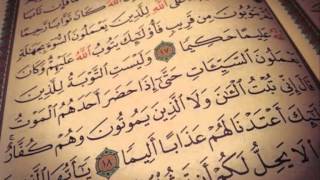 كَانَ تَوَّابًا رَّحِيمًا
عَلَى ٱللَّهِ لِلَّذِينَ يَعْمَلُونَ ٱلسُّوٓءَ بِجَهَٰلَةٍ
يَتُوبُونَ مِن قَرِيبٍ فَأُو۟لَٰٓئِكَ يَتُوبُ ٱللَّهُ عَلَيْهِمْ وَكَانَ
ٱللَّهُ عَلِيمًا حَكِيمًا ١٧ وَلَيْسَتِ ٱلتَّوْبَةُ لِلَّذِينَ
يَعْمَلُونَ ٱلسَّيِّـَٔاتِ حَتَّىٰٓ إِذَا حَضَرَ أَحَدَهُمُ ٱلْمَوْتُ
قَالَ إِنِّى تُبْتُ ٱلْـَٰٔنَ وَلَا ٱلَّذِينَ يَمُوتُونَ وَهُمْ كُفَّارٌ
أُو۟لَٰٓئِكَ أَعْتَدْنَا لَهُمْ عَذَابًا أَلِيمًا ١٨ يَٰٓأَيُّهَا
لَا يَحِلُّ لَكُمْ أَن